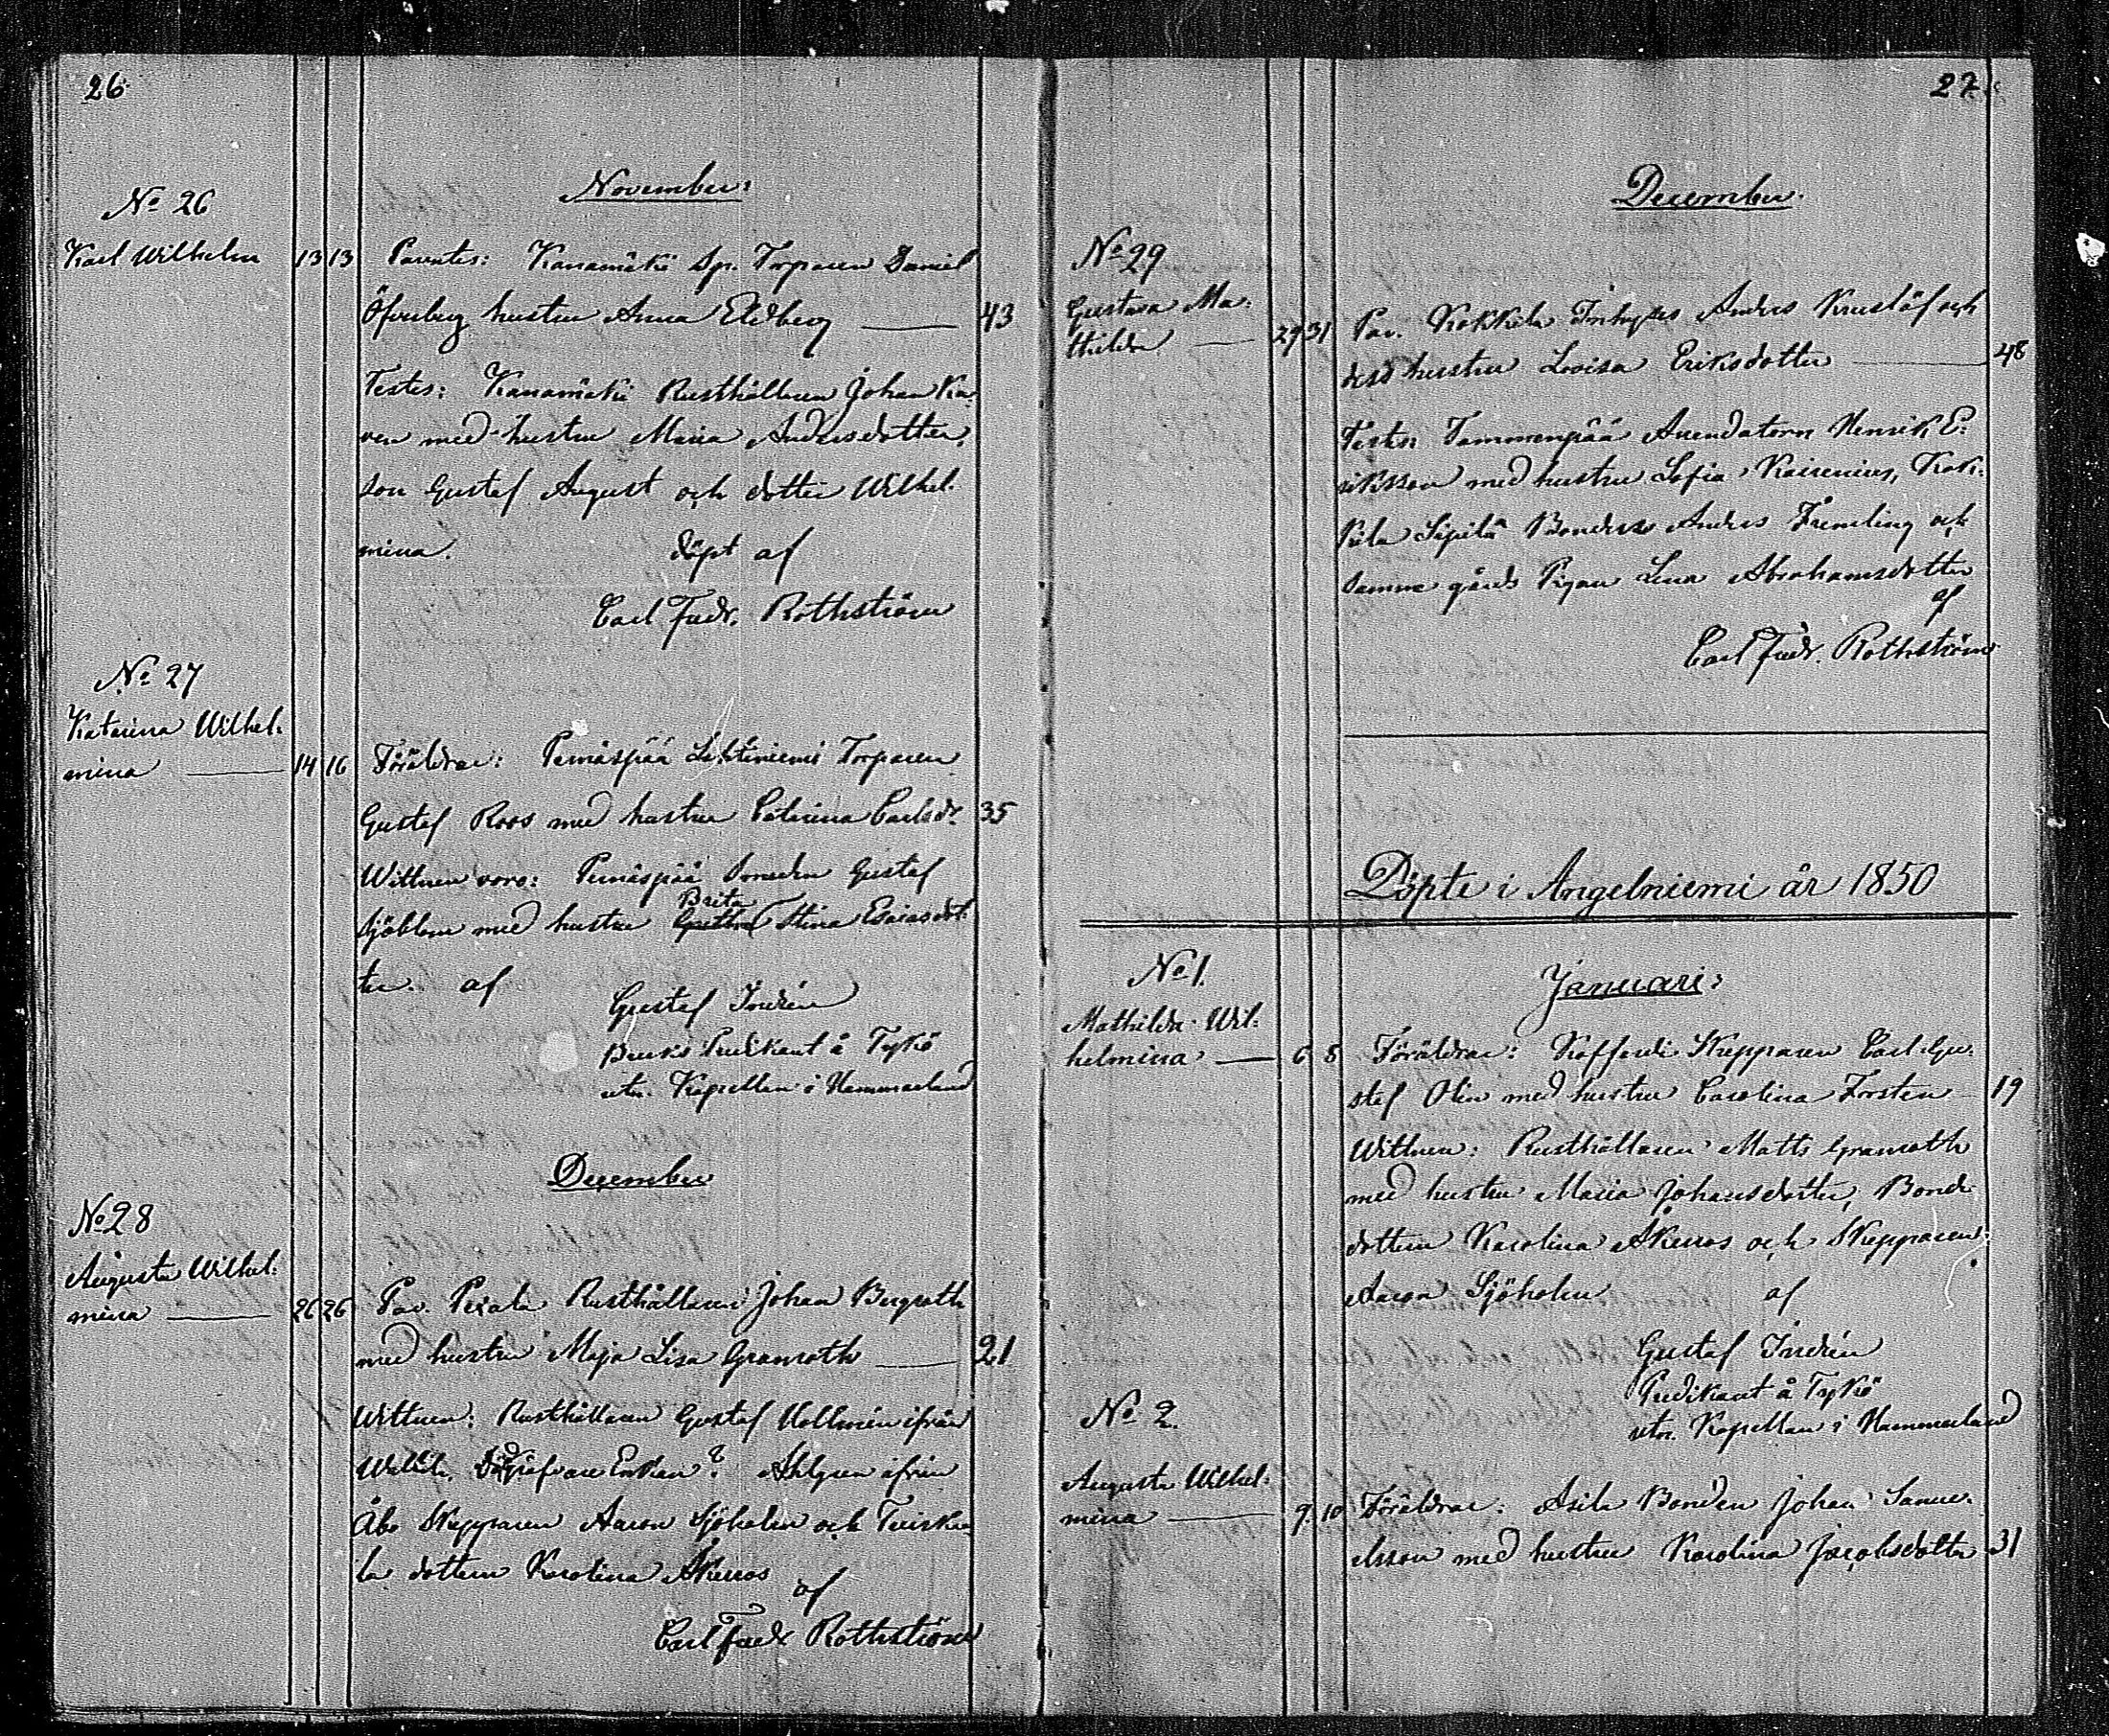 26
November:
No 26
Karl Wilhelm 13 13 Parentes: Kanamäki Sp. Torparen Daniel
Öfverberg hustru Anna Ekberg — 43
Testes: Kanamäki Rusthållaren Johan Ka-
ven med hustru Maria Andersdotter,
son Gustaf August och dotter Wilhel-
mina. döpt af
Carl Fredr. Rothström
No 27
Katarina Wilhel-
mina — 14 16 Föräldrar: Pemäspää Torparen
Gustaf Roos med hustru Catarina Carlsdr. 35
Wittnen voro: Pemäspää Gustaf
Sjöblom med hustru Brita Stina Esaiasdot-
ter. af
Gustaf Indrén
Bruks Predikant å Tykö
utn. Kapellan i Hammarland
December
No 28
Augusta Wilhel-
mina — 26 26 Par. Rusthållaren Johan Bergroth
med hustru Maja Lisa Granroth — 21
Wittnen: Rusthållaren Gustaf Hellmén ifrån
Enkan? Ahlgren ifrån
Åbo Skepparen Aaron Sjöholm och Tuisku-
la dottern Karolina Åkerros
af
Carl Fredr Rothström
27.
December.
No 29
Gustava Ma-
thilda — 29 31 Par. Kokkila Inhyses Anders och
dess hustru Lovisa Eriksdotter — 48
Testes Tammenpää Arendatorn Henrik E-
riksson med hustru Sofia Kairenius, Kok-
kila Sipilä Anders Främling och
samma gårds Pigan Lena Abrahamsdotter
af
Carl Fredr. Rothström
Döpte i Angelniemi år 1850
Januari:
No 1.
Mathilda Wil-
helmina — 6 8 Föräldrar: Skepparen Carl Gu-
staf Olin med hustru Carolina Forsten 19
Wittnen: Rusthållaren Matts Granroth
med hustru Maria Johansdotter, Bond-
dottern Karolina Åkerros och Skepparen
Aaron Sjöholm af
Gustaf Indrén
Predikant å Tykö
utn. Kapellan i Hammarland
No 2.
Augusta Wilhel-
mina — 9. 10 Föräldrar: Asila Bonden Johan Samu-
elsson med hustru Karolina Jacobsdotter 31